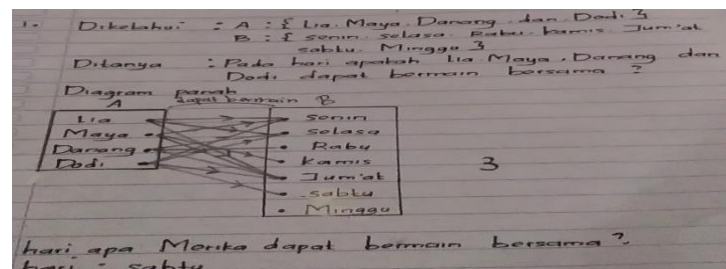 1. Diketahui : A : { Lia. Maya. Danang. dan Dodi }
B : { senin. selasa. Rabu. kamis. Jum'at
sabtu. Minggu }
Ditanya : Pada hari apakah Lia. Maya. Danang dan
Dodi dapat bermain bersama ?
Diagram panah
A dapat bermain B
Lia senin
Maya selasa
Danang Rabu
Dodi kamis
3
Jum'at
sabtu
Minggu
hari apa Merika dapat bermain bersama ?
hari : sabtu